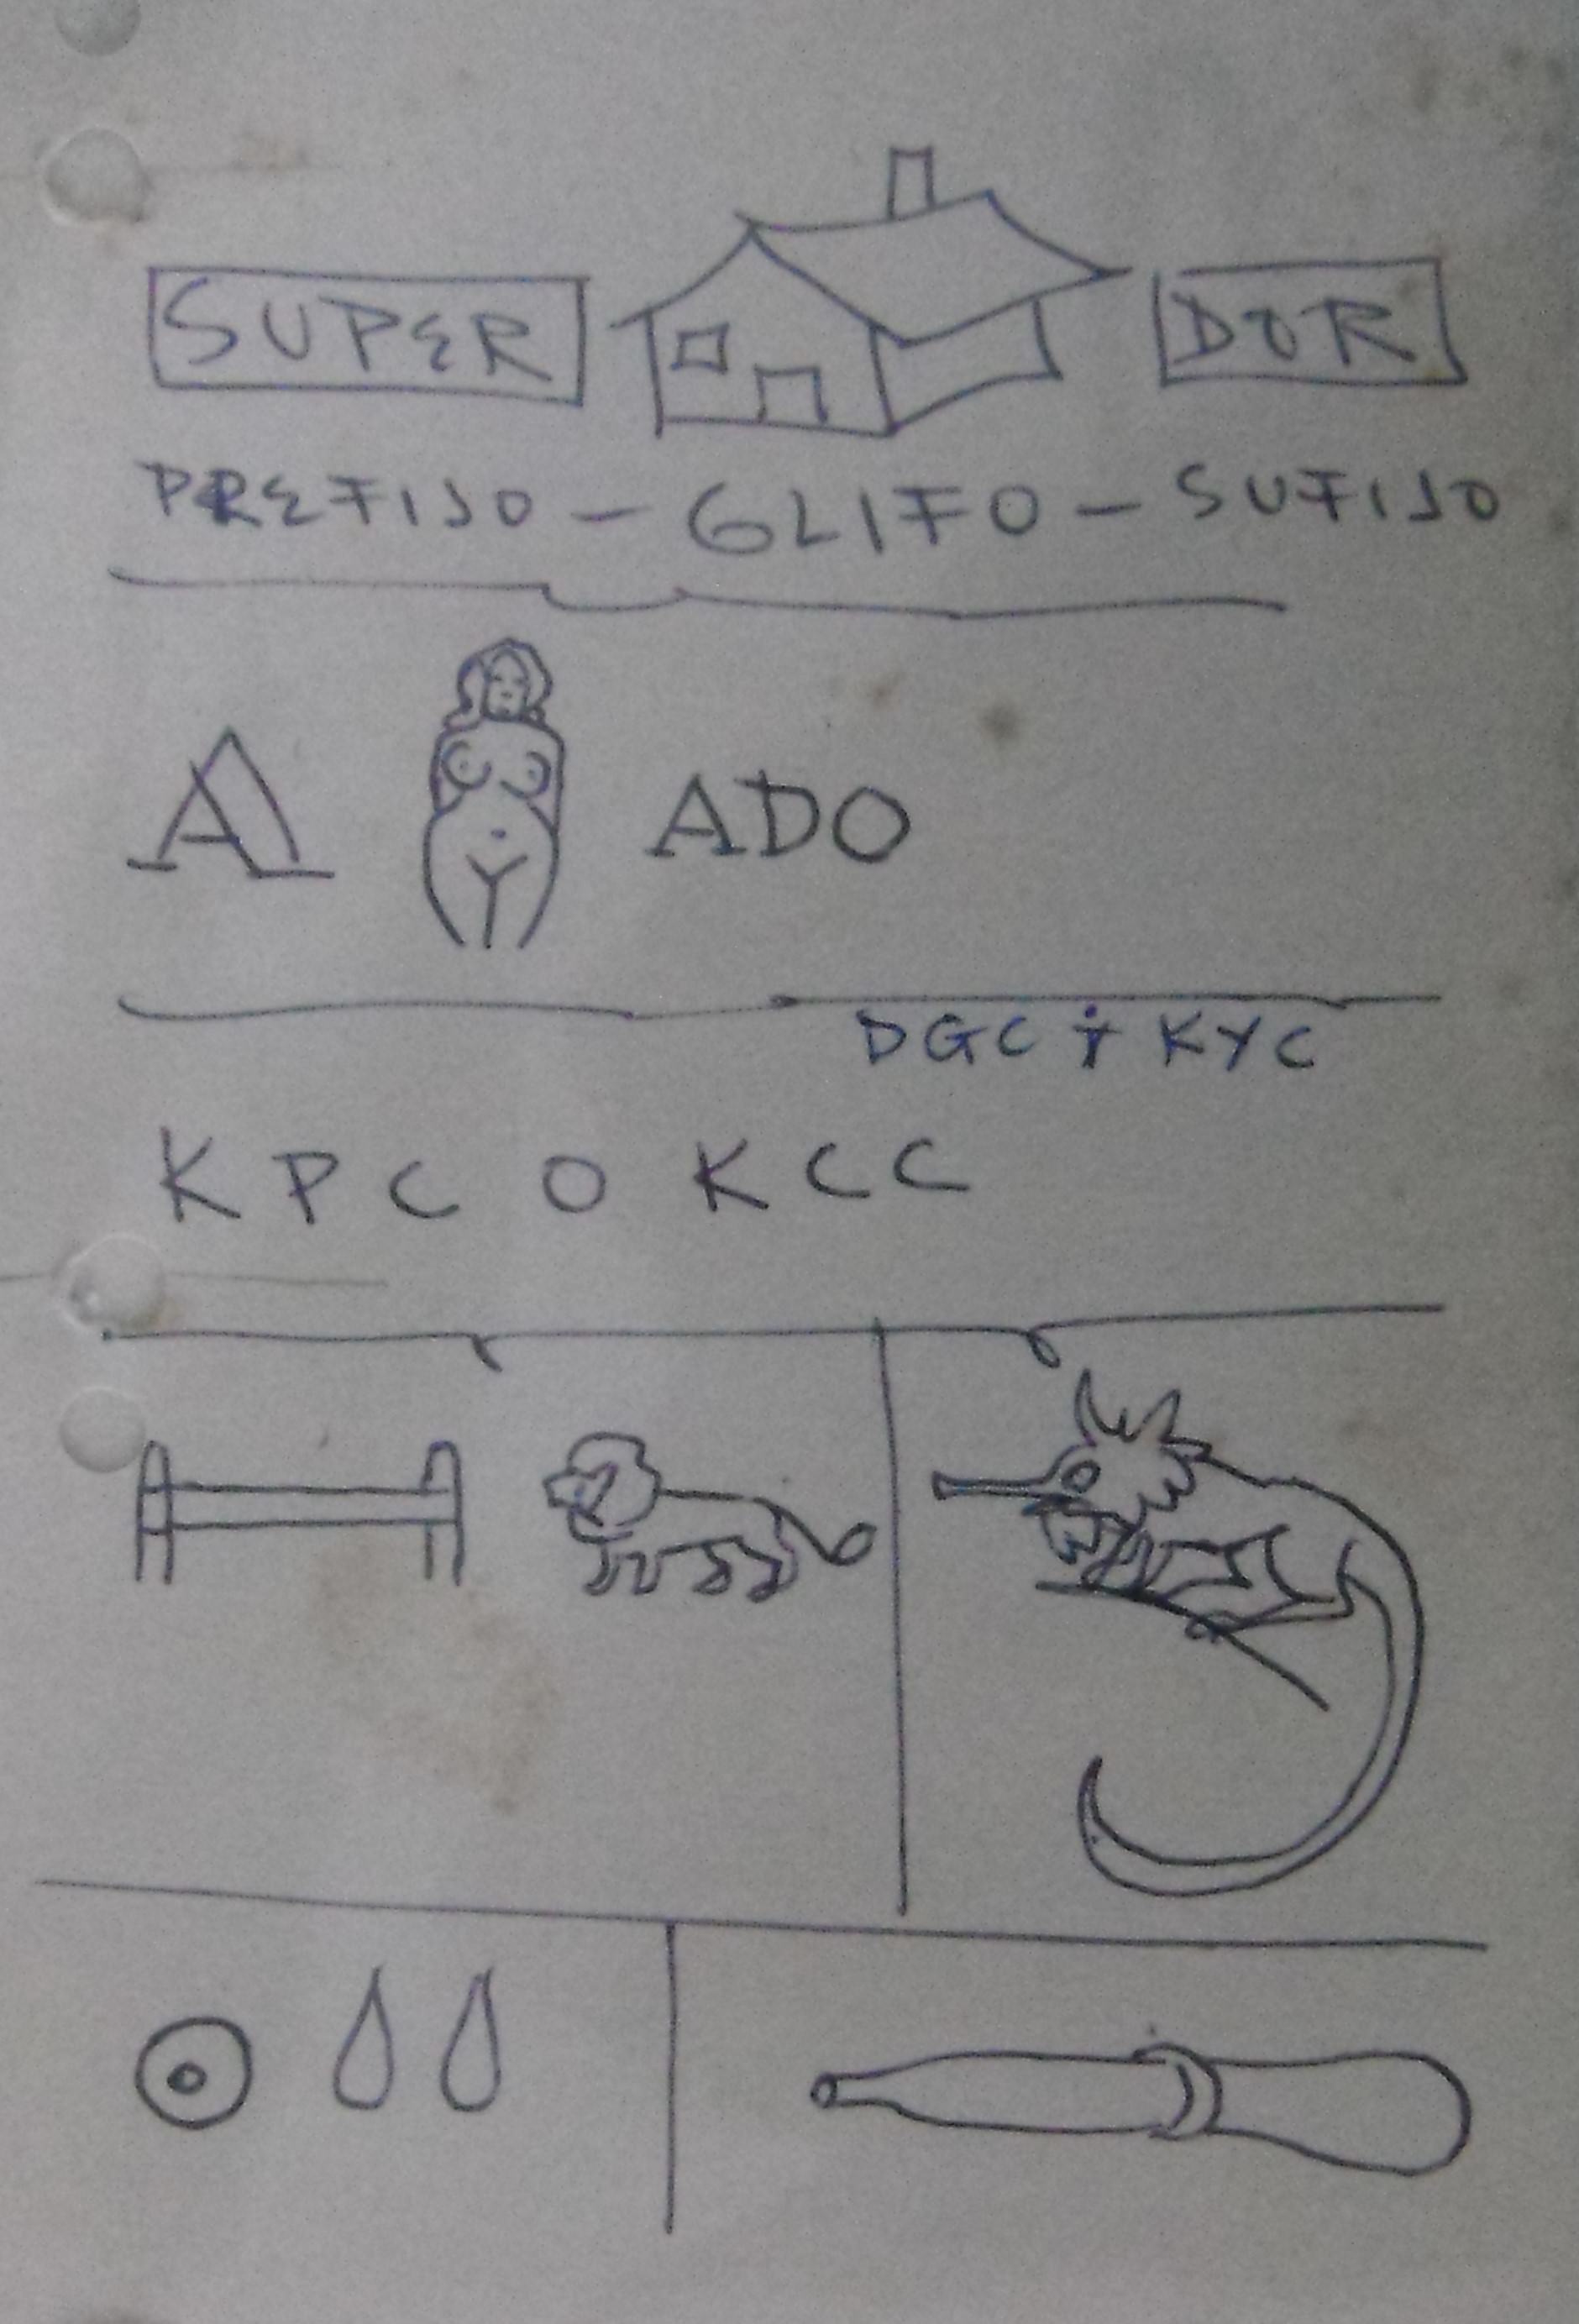 SUPER DOR
PREFIJO - GLIFO - SUFIJO
A ADO
DGC Y KYC
K P C O K C C